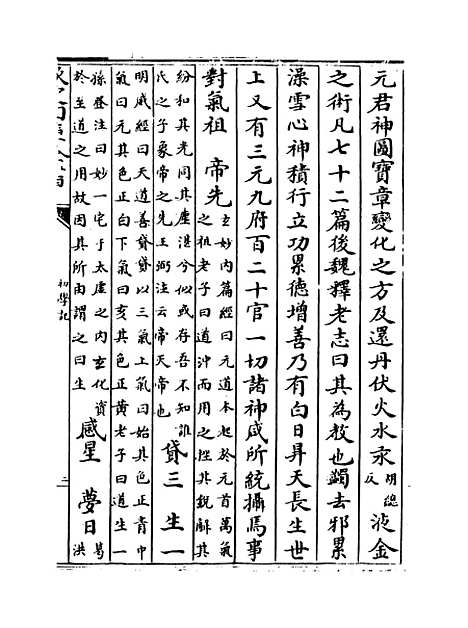 元君神圖寶章變化之方及還丹伏火水汞胡總反液金
之術凡七十二篇後魏釋老志曰其為教也蠲去邪累
澡雪心神積行立功累徳增善乃有白日昇天長生世
上又有三元九府百二十官一切諸神咸所統攝焉事
對氣祖 帝先
玄妙内篇經曰元道本起於元首萬氣
之祖老子曰道沖而用之挫其銳解其
紛和其光同其塵湛兮似或存吾不知誰
氏之子象帝之先王弼注云帝天帝也
貸三 生一
明威經曰天道善貸貸以三氣上氣曰始其色正青中
氣曰元其色正白下氣曰玄其色正黃老子曰道生一
孫登注曰妙一宅于太虛之内玄化資
於至道之用故因其所由謂之曰生
感星 夢日
葛
洪
初學記
二